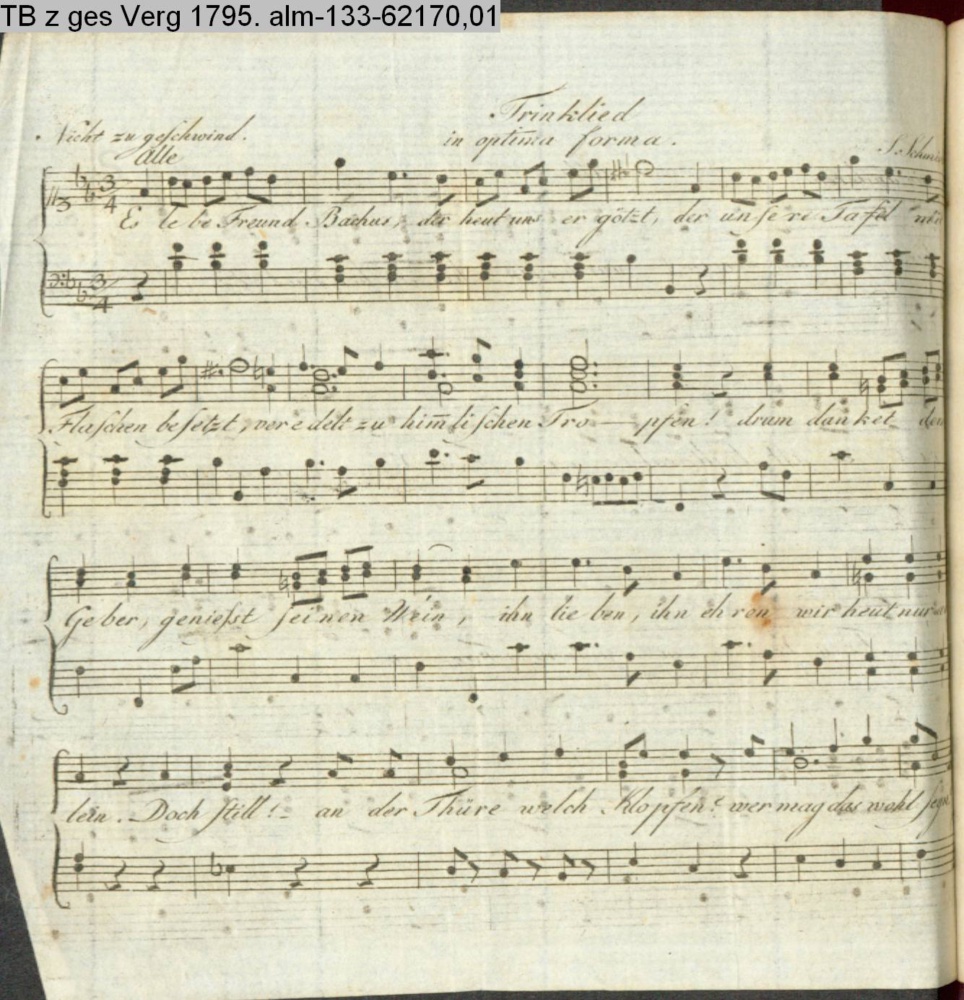 TB z ges Verg 1795. alm-133-62170,01
Trinklied
Nicht zu geschwind.
in optima forma.
Alle
Es lebe Freund Bachus, der heut uns ergötzt, der unsere Tafel mit
Flaschen besetzt, veredelt zu him̄lischen Tro — pfen! drum danket dem
Geber, genießt seinen Wein, ihn lieben, ihn ehren wir heut nur al
lein. Doch still! - an der Thüre welch Klopfen? wer mag das wohl seyn